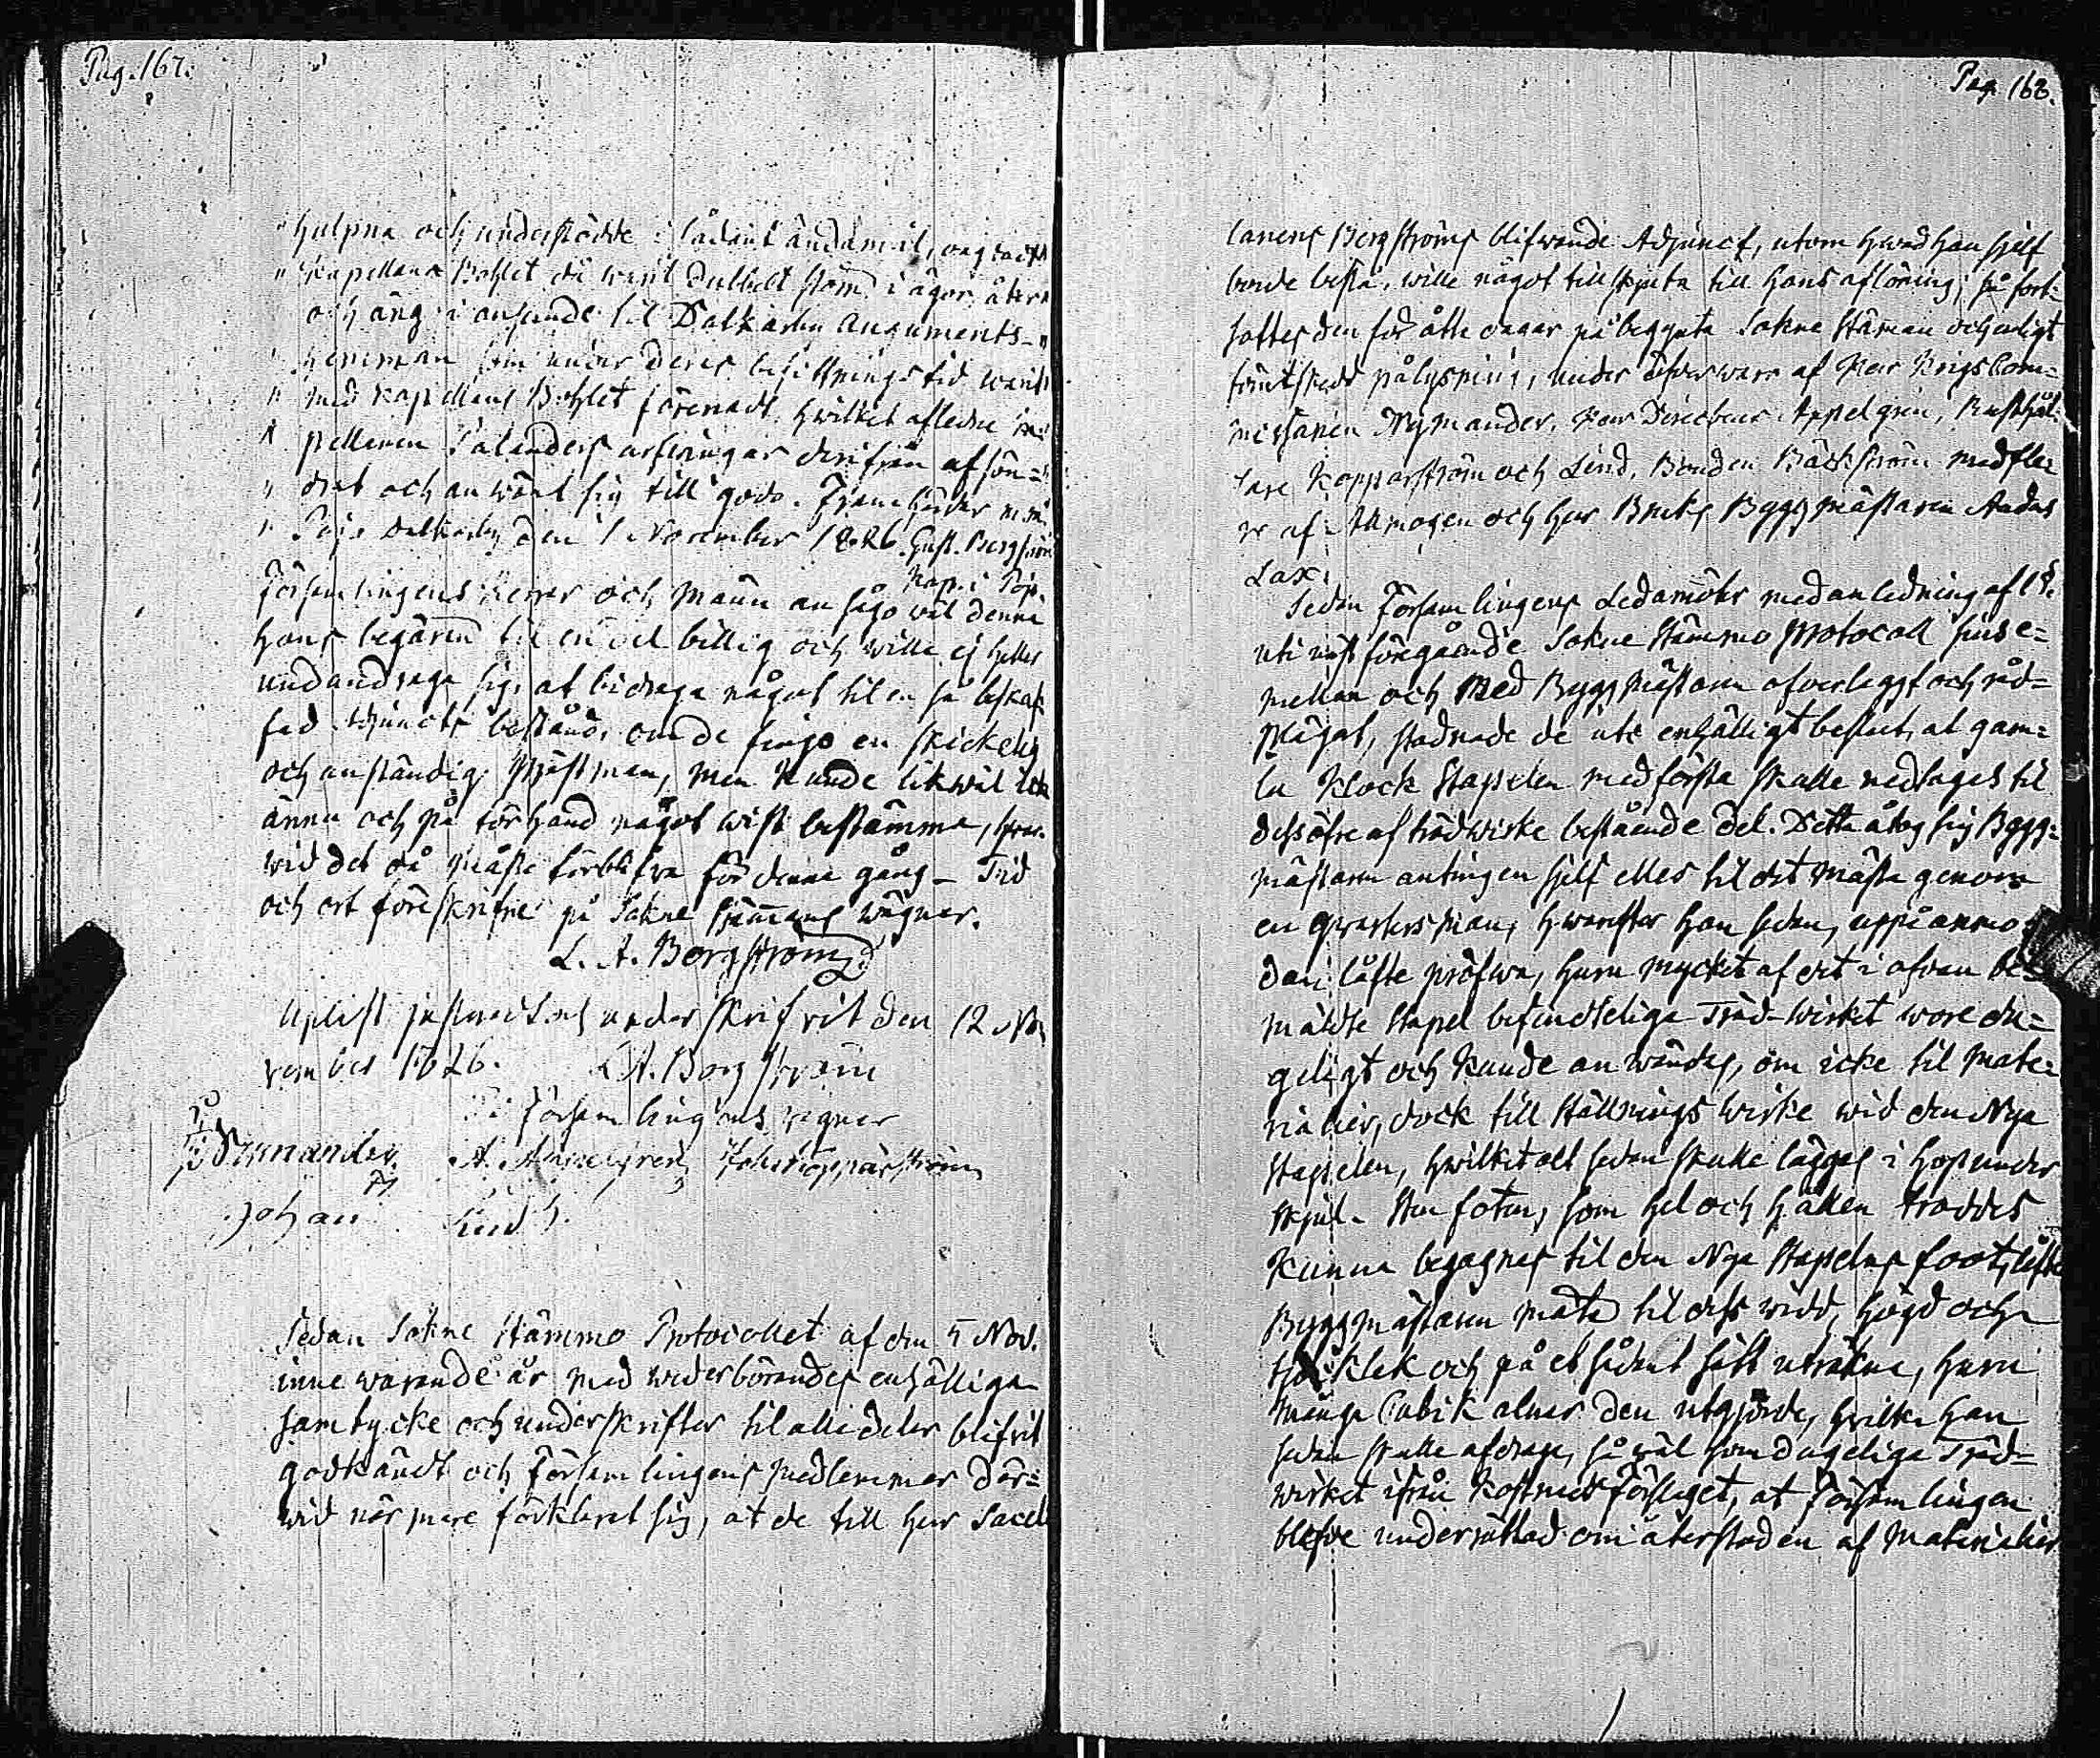 Pag. 167.
" hulpna och understödde i sådant ändamål,
" Kapellans Bohlet då warit dubbelt större i åger, åker "
och äng i anseende til Dalkarby Auguments- "
" hemman som under deras besittningstid warit
" med Kapellans Bohlet förenadt hwilket aflednе Ka=
" pellanen Salanders arfwingar derifrån afsön= "
" drat och anwänt sig till godo. Framhärdar m.m.
" Pojo Dalkarby den 1 November 1826. Gust. Bergström
Kap. i Pojo.
Församlingens Herrar och Männ ansågo wäl denna
hans begäran til en del billig och wille ej heller
undandraga sig, at bidraga något til en så beskaf-
fad Adjuncts bestånd, om de finge en skickelig
och anständig Prästman, men kunde likwäl icke
ännu och på förhand något wist bestämma, hwar-
wid det då måste förblifwa för denna gång – Tid
och ort föreskrifne på Sokne Stämmans wägnar.
L. A. Borgström
Uplist justerat och underskrifwit den 12 No-
vember 1826. L. A. Borgström
På Församlingens wägnar
Nymander A. Appelgren Joh. Kopparström
Johan Lind
Sedan Sokne Stämmo Protocollet af den 5 Nov.
innewarande år med wederbörandes enhälliga
samtycke och underskrifter til alla delar blifwit
godkändt och Församlingens medlemmar där=
wid närmare förklarat sig, at de till Herr Sacel-
Pag. 168.
lanens Bergströms blifwande Adjunct, utom hwad han sjelf
borde bestå, wille något tillskjuta till hans aflöning; så fort=
sattes den för åtta dagar påbegynta Sokne Stämman och enligt
förutskedd pålysning, under öfwerwaro af Herr Krigs Com=
missarien Nymander, Herr Directeur Appelgren, Rusthål-
lare Kopparström och Lind, Bonden Bäckström med fle-
re af Allmogen och Herr Bruks Byggmästaren Anders
Lax.
Sedan Församlingens Ledamöter med anledning af 1 §.
uti näst föregående Sokne Stämmo Protocoll sins e=
mellan och med Byggmästaren öfwerlaggt och råd=
plägat, stadnade de uti enhälligt beslut, at gam=
la Klock Stapelen med första skulle nedtagas til
dess öfre af trädwirke bestående del. Detta åtog sig Bygg=
mästaren antingen sjelf eller til det mästa genom
en Qwartersman, hwarefter han sedan, uppå anmo-
dan, låfte pröfwa, huru mycket af det i ofwan be-
mälte Stapel befindteliga Träd-wirket wore du=
geligt och kunde anwändas, om icke til mate=
rialier, dock till Ställnings wirke wid den Nya
Stapelen, hwilket alt sedan skulle läggas i hop under
skjul. Sten foten, som hel och hållen troddes
kunna begagnas til den Nya Stapelns foot, låfte
Byggmästaren mäta til dess widd, högd och
tjocklek och på et sådant sätt uträkna, huru
många Cubik alnar den utgjorde, hwilka han
sedan skulle afdraga, så wäl som dugeliga Träd-
wirket ifrån Kostnads Förslaget, at Församlingen
blefwe underrättad om återstoden af Materialier